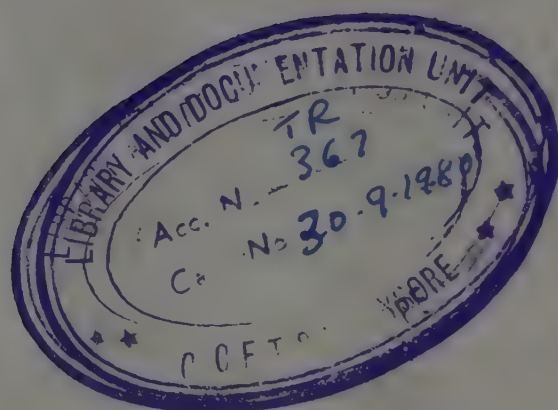 LIBRARY AND DOCU ENTATION UNIT
TR
Acc. N. - 367
No 30.9.1980